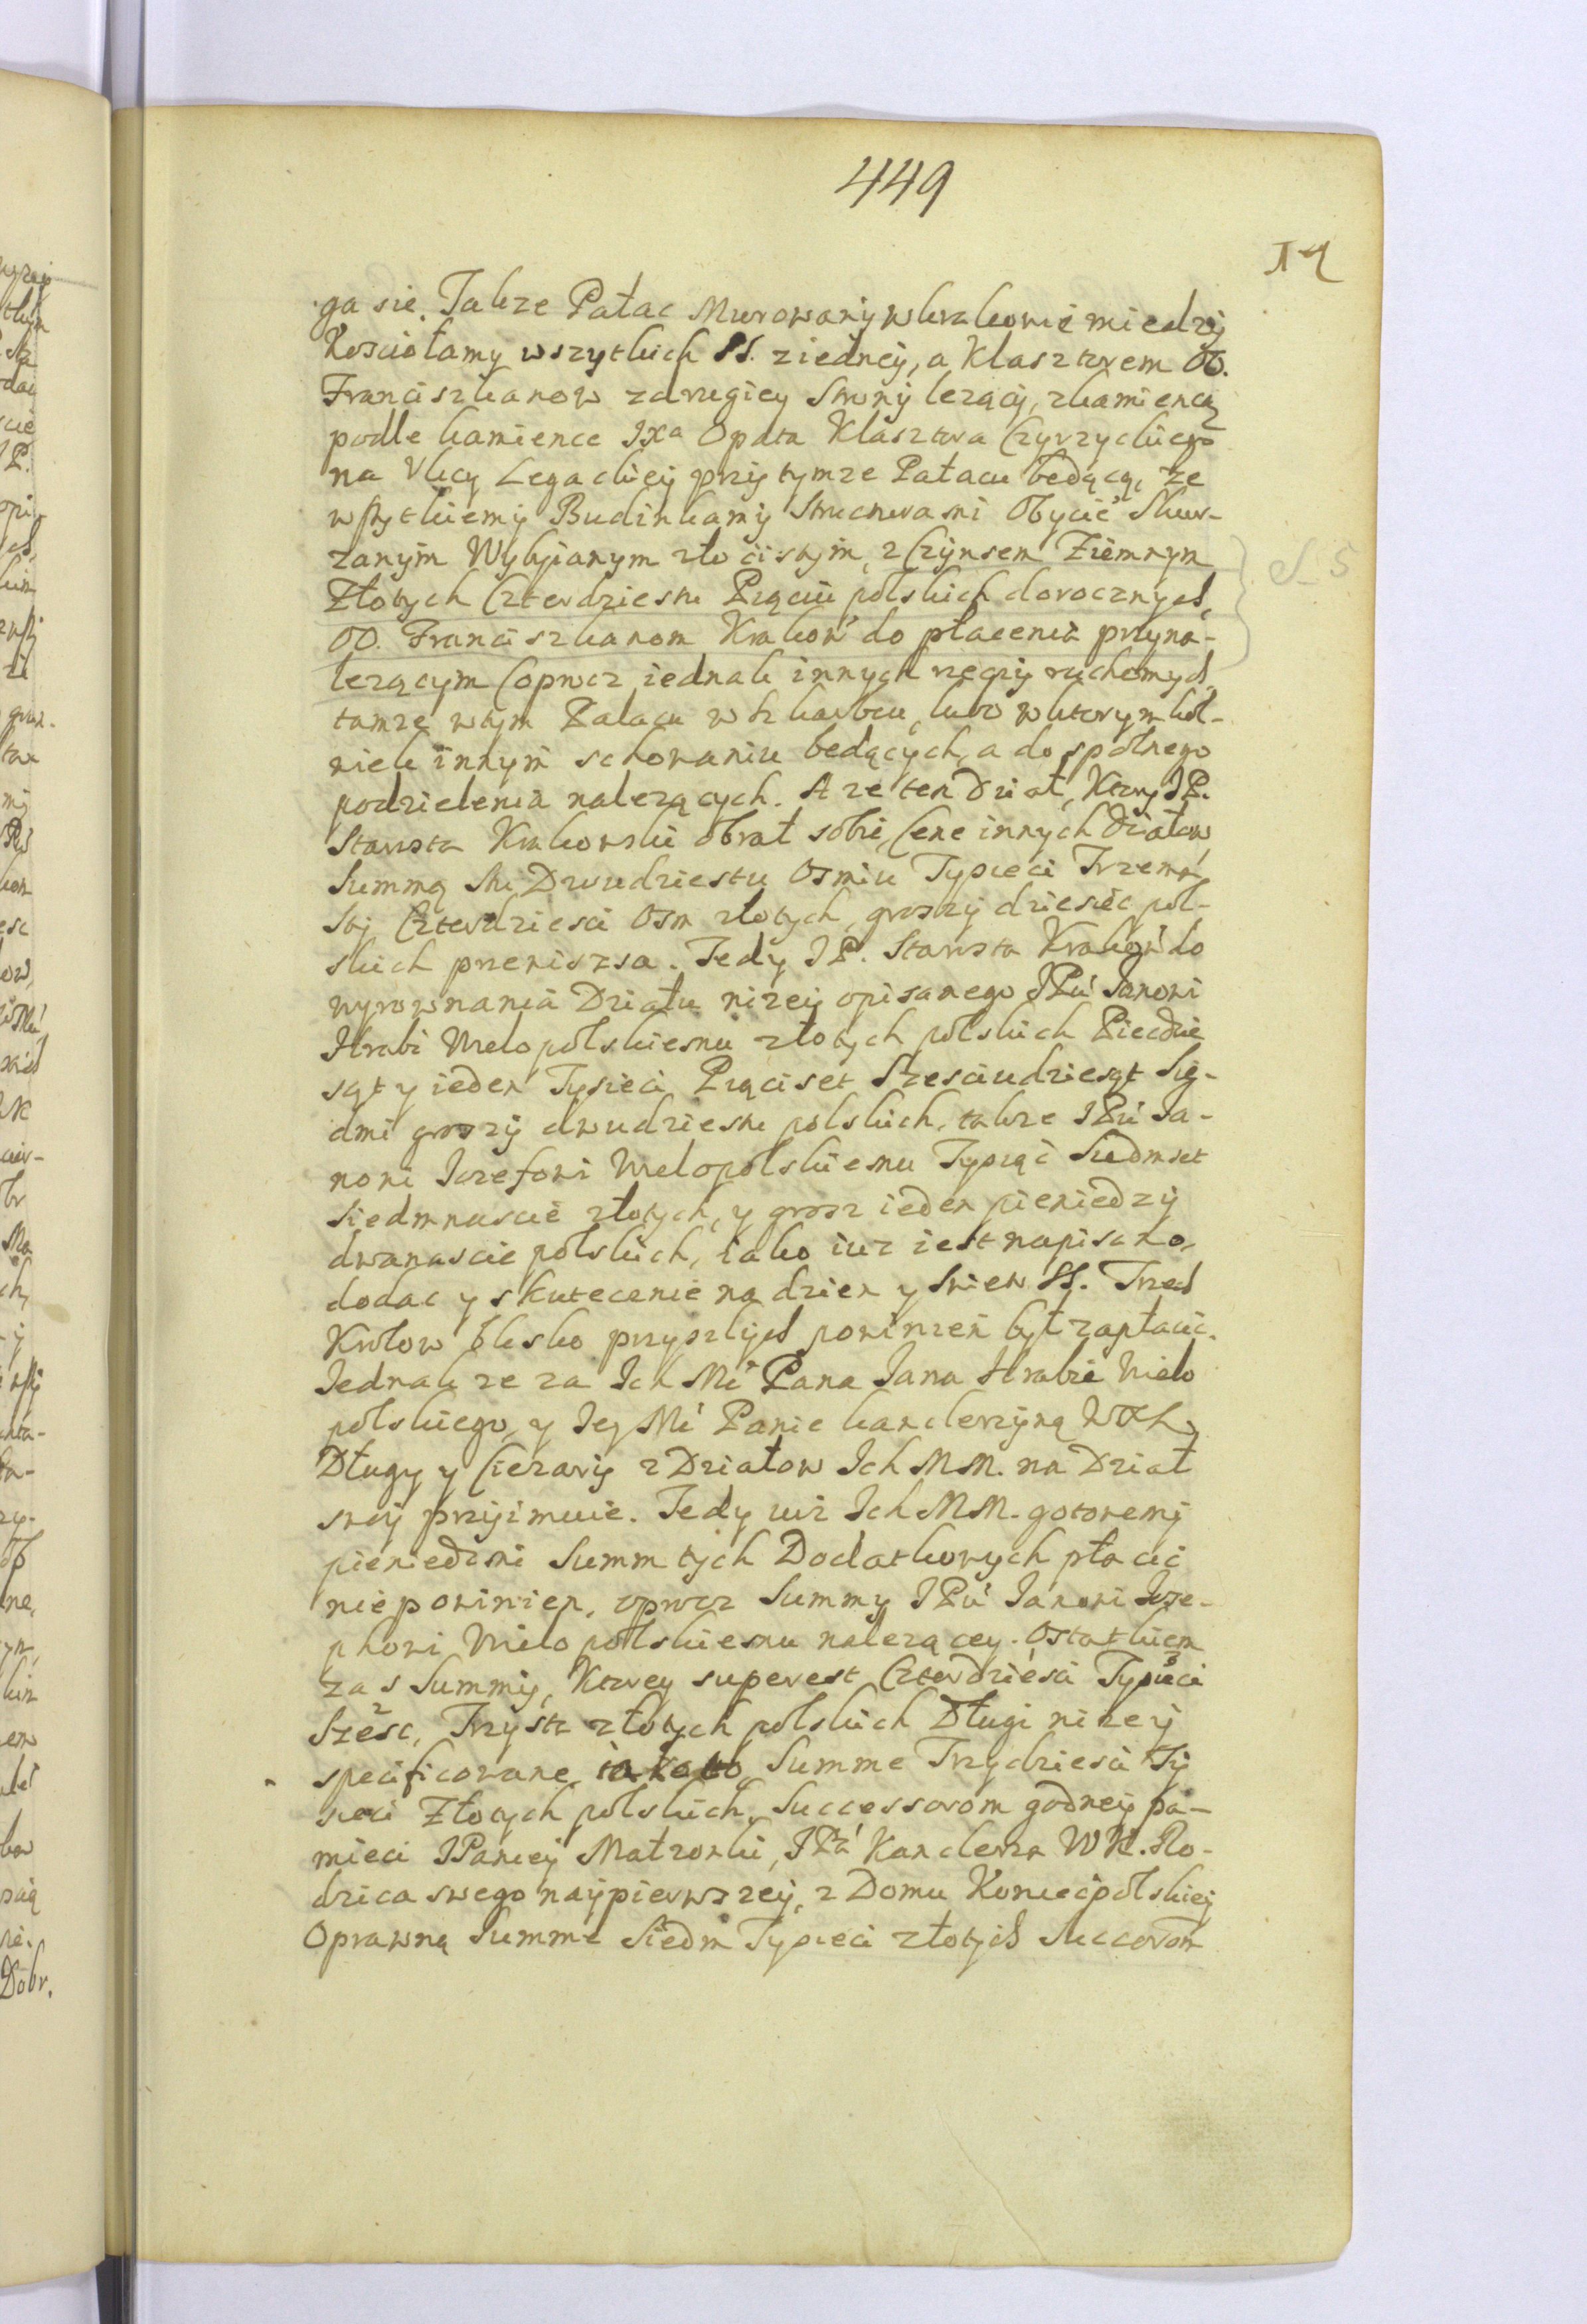 449
14
ga sie. Takze Pałac Murowany w krakowie miedzy
Kosciołamy wszytkich SS. z iedney, a Klasztorem OO.
Franciszkanow z drugiey Strony lezący, z kamienicą
podle kamience IXa Opata Klasztora Czyrzyckiego
na Vlicy Legackiey przy tymze Pałacu bedącą, ze
wszytkiemy Budinkamy Structurami Obycié Skur-
zanym Wybyianym zło cistym, z Czynsem Ziemnym
Złotych Czterdziestu Piąciu polskich dorocznych,
OO. Franciszkanom Krakow do płacenia przyna-
lezącym (oprocz iednak innych rzeczy ruchomych
tamze w tym Pałacu w skarbcu, lubo w ktorym kol-
niek innym schowaniu bedących, a do spolnego
podzielenia nalezących. A ze ten Dział, Ktory I P.
Starosta Krakowski obrał sobie, Cene innych Działow
Summą Stu Dwudziestu Osmiu Tysieci Trzema
Sty Czterdziesci Osm złotych, groszy dziesiec pol-
skich przeniszsa. Tedy I P. Starosta Krakow do
wyrownania Działu nizey opisanego JPu Janowi
Hrabi Wielopolskiemu złotych polskich Piecdzie
sąt y ieden Tysieci Piąciset Szesciudziesąt Sie-
dmi groszy dwudziestu polskich, takze JPu Ja-
nowi Jozefowi Wielopolskiemu Tysiąc Siedmset
Siedmnascie złotych, y grosz ieden pieniedzy
dwanascie polskich, iako iuz iest napisano,
dodac y skutecznie na dzien y Swieto SS. Trzech
Krolow blisko przyszłych powinzen był zapłacic.
Jednak ze za Ich Mć Pana Jana Hrabie Wielo
polskiego, y Jey Mć Panie kanclerzyną WK,
Długy y Ciezary z Działow Ich MM. na Dział
swoy przyimuie. Tedy iuz Ich MM. gotowemy
pieniedzmi Summ tych Dodatkowych płacic
nie powinien, oprocz Summy JPu Janowi Joze-
phowi Wielopolskiemu nalezącey. Ostatkiem
zas Summy, Ktorey superest Czterdziesci Tysieci
Szesc, Trzysta złotych polskich Długi nizey
specificowane iako to Summe Trzydziesci Ty
sieci Złotych polskich, Successorom godney pa-
mieci JPaniey Małzonki, JPa Kanclerza WK. Ro-
dzica swego naypierwszey, z Domu Koniecpolskiey
Oprawną Summe Siedm Tysieci złotych Succorom